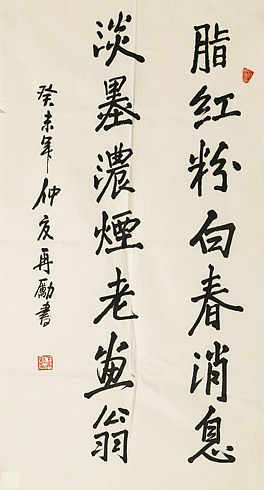 脂紅粉白春消息
淡墨濃煙老畫翁
癸未年仲夏再勵書